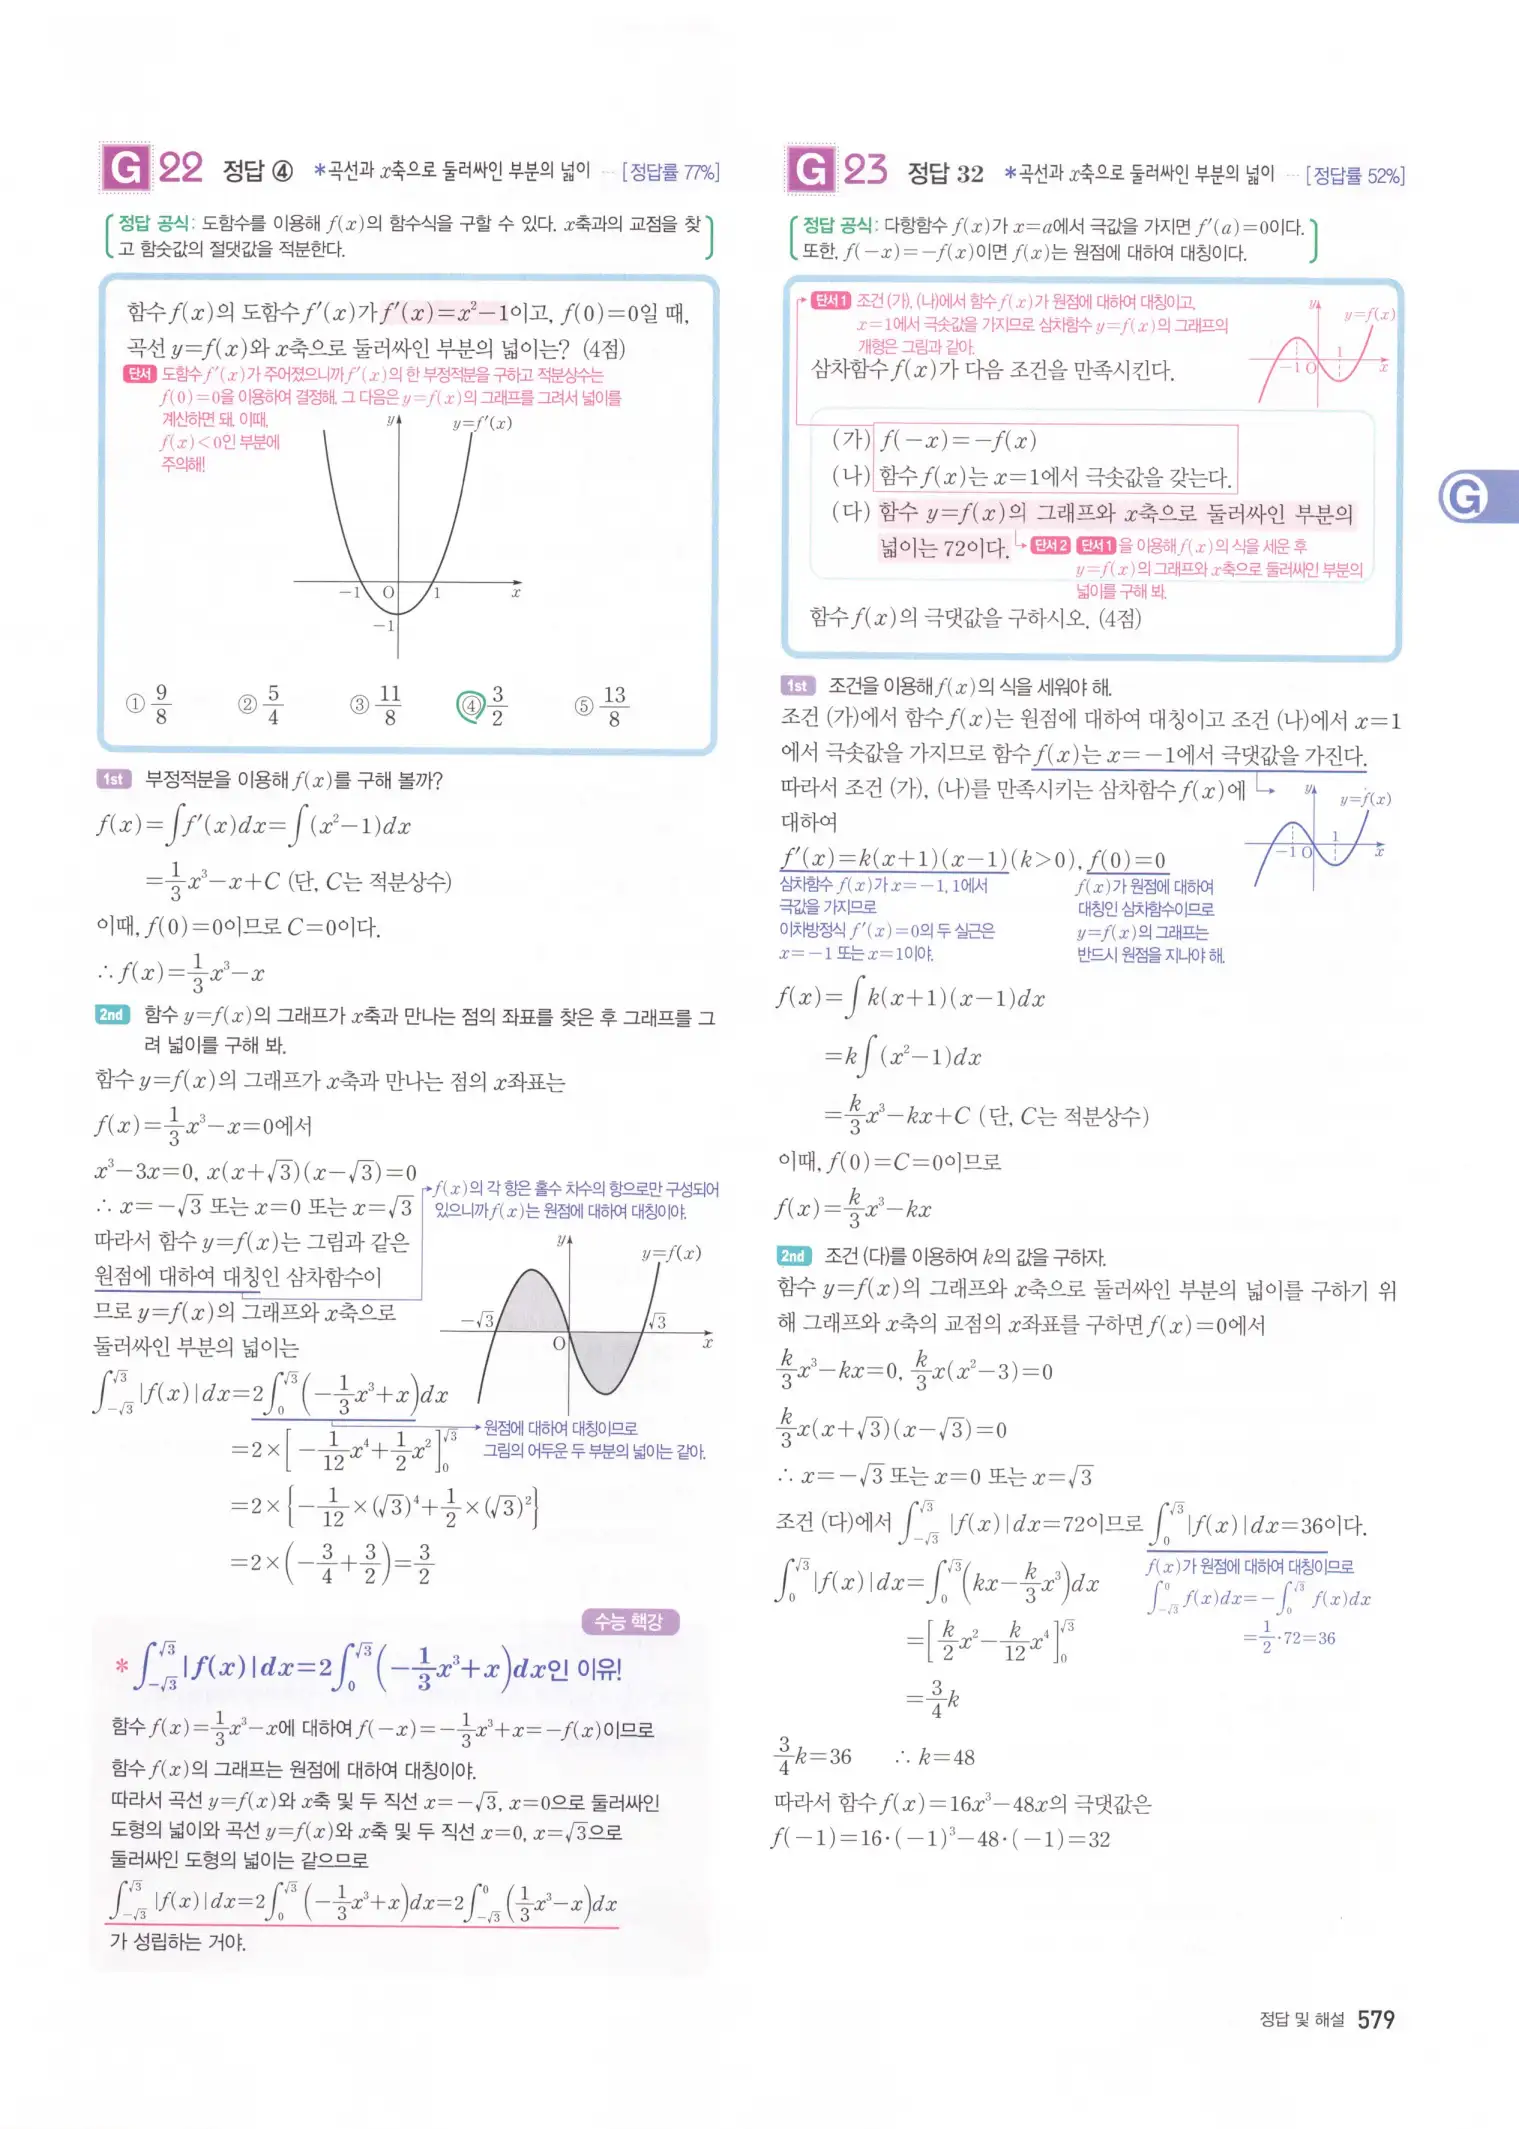 G 22 정답 ④ *곡선과 x축으로 둘러싸인 부분의 넓이 ··· [정답률 77%]
정답 공식: 도함수를 이용해 f(x)의 함수식을 구할 수 있다. x축과의 교점을 찾
고 함숫값의 절댓값을 적분한다.
함수 f(x)의 도함수 f′(x)가 f′(x)=x²−1이고, f(0)=0일 때,
곡선 y=f(x)와 x축으로 둘러싸인 부분의 넓이는? (4점)
단서 도함수 f′(x)가 주어졌으니까 f′(x)의 한 부정적분을 구하고 적분상수는
f(0)=0을 이용하여 결정해. 그 다음은 y=f(x)의 그래프를 그려서 넓이를
계산하면 돼. 이때,
f(x)<0인 부분에
주의해!
y y=f′(x)
−1 O 1 x
−1
① 9/8 ② 5/4 ③ 11/8 ④ 3/2 ⑤ 13/8
1st 부정적분을 이용해 f(x)를 구해 볼까?
f(x)=∫f′(x)dx=∫(x²−1)dx
=1/3x³−x+C (단, C는 적분상수)
이때, f(0)=0이므로 C=0이다.
∴ f(x)=1/3x³−x
2nd 함수 y=f(x)의 그래프가 x축과 만나는 점의 좌표를 찾은 후 그래프를 그
려 넓이를 구해 봐.
함수 y=f(x)의 그래프가 x축과 만나는 점의 x좌표는
f(x)=1/3x³−x=0에서
x³−3x=0, x(x+√3)(x−√3)=0
∴ x=−√3 또는 x=0 또는 x=√3
f(x)의 각 항은 홀수 차수의 항으로만 구성되어
있으니까 f(x)는 원점에 대하여 대칭이야.
따라서 함수 y=f(x)는 그림과 같은
원점에 대하여 대칭인 삼차함수이
므로 y=f(x)의 그래프와 x축으로
둘러싸인 부분의 넓이는
y y=f(x)
−√3 O √3 x
∫_{−√3}^{√3}|f(x)|dx=2∫_0^{√3}(−1/3x³+x)dx
원점에 대하여 대칭이므로
그림의 어두운 두 부분의 넓이는 같아.
=2×[−1/12x⁴+1/2x²]_0^{√3}
=2×{−1/12×(√3)⁴+1/2×(√3)²}
=2×(−3/4+3/2)=3/2
수능 핵강
*∫_{−√3}^{√3}|f(x)|dx=2∫_0^{√3}(−1/3x³+x)dx인 이유!
함수 f(x)=1/3x³−x에 대하여 f(−x)=−1/3x³+x=−f(x)이므로
함수 f(x)의 그래프는 원점에 대하여 대칭이야.
따라서 곡선 y=f(x)와 x축 및 두 직선 x=−√3, x=0으로 둘러싸인
도형의 넓이와 곡선 y=f(x)와 x축 및 두 직선 x=0, x=√3으로
둘러싸인 도형의 넓이는 같으므로
∫_{−√3}^{√3}|f(x)|dx=2∫_0^{√3}(−1/3x³+x)dx=2∫_{−√3}^0(1/3x³−x)dx
가 성립하는 거야.
G 23 정답 32 *곡선과 x축으로 둘러싸인 부분의 넓이 ··· [정답률 52%]
정답 공식: 다항함수 f(x)가 x=a에서 극값을 가지면 f′(a)=0이다.
또한, f(−x)=−f(x)이면 f(x)는 원점에 대하여 대칭이다.
단서1 조건 (가), (나)에서 함수 f(x)가 원점에 대하여 대칭이고,
x=1에서 극솟값을 가지므로 삼차함수 y=f(x)의 그래프의
개형은 그림과 같아.
y y=f(x)
−1 O 1 x
삼차함수 f(x)가 다음 조건을 만족시킨다.
(가) f(−x)=−f(x)
(나) 함수 f(x)는 x=1에서 극솟값을 갖는다.
(다) 함수 y=f(x)의 그래프와 x축으로 둘러싸인 부분의
넓이는 72이다. 단서2 단서1을 이용해 f(x)의 식을 세운 후
y=f(x)의 그래프와 x축으로 둘러싸인 부분의
넓이를 구해 봐.
함수 f(x)의 극댓값을 구하시오. (4점)
G
1st 조건을 이용해 f(x)의 식을 세워야 해.
조건 (가)에서 함수 f(x)는 원점에 대하여 대칭이고 조건 (나)에서 x=1
에서 극솟값을 가지므로 함수 f(x)는 x=−1에서 극댓값을 가진다.
따라서 조건 (가), (나)를 만족시키는 삼차함수 f(x)에
대하여
y y=f(x)
−1 O 1 x
f′(x)=k(x+1)(x−1)(k>0), f(0)=0
삼차함수 f(x)가 x=−1, 1에서
극값을 가지므로
이차방정식 f′(x)=0의 두 실근은
x=−1 또는 x=1이야.
f(x)가 원점에 대하여
대칭인 삼차함수이므로
y=f(x)의 그래프는
반드시 원점을 지나야 해.
f(x)=∫k(x+1)(x−1)dx
=k∫(x²−1)dx
=k/3x³−kx+C (단, C는 적분상수)
이때, f(0)=C=0이므로
f(x)=k/3x³−kx
2nd 조건 (다)를 이용하여 k의 값을 구하자.
함수 y=f(x)의 그래프와 x축으로 둘러싸인 부분의 넓이를 구하기 위
해 그래프와 x축의 교점의 x좌표를 구하면 f(x)=0에서
k/3x³−kx=0, k/3x(x²−3)=0
k/3x(x+√3)(x−√3)=0
∴ x=−√3 또는 x=0 또는 x=√3
조건 (다)에서 ∫_{−√3}^{√3}|f(x)|dx=72이므로 ∫_0^{√3}|f(x)|dx=36이다.
f(x)가 원점에 대하여 대칭이므로
∫_{−√3}^0 f(x)dx=−∫_0^{√3} f(x)dx
=1/2·72=36
∫_0^{√3}|f(x)|dx=∫_0^{√3}(kx−k/3x³)dx
=[k/2x²−k/12x⁴]_0^{√3}
=3/4k
3/4k=36 ∴ k=48
따라서 함수 f(x)=16x³−48x의 극댓값은
f(−1)=16·(−1)³−48·(−1)=32
정답 및 해설 579